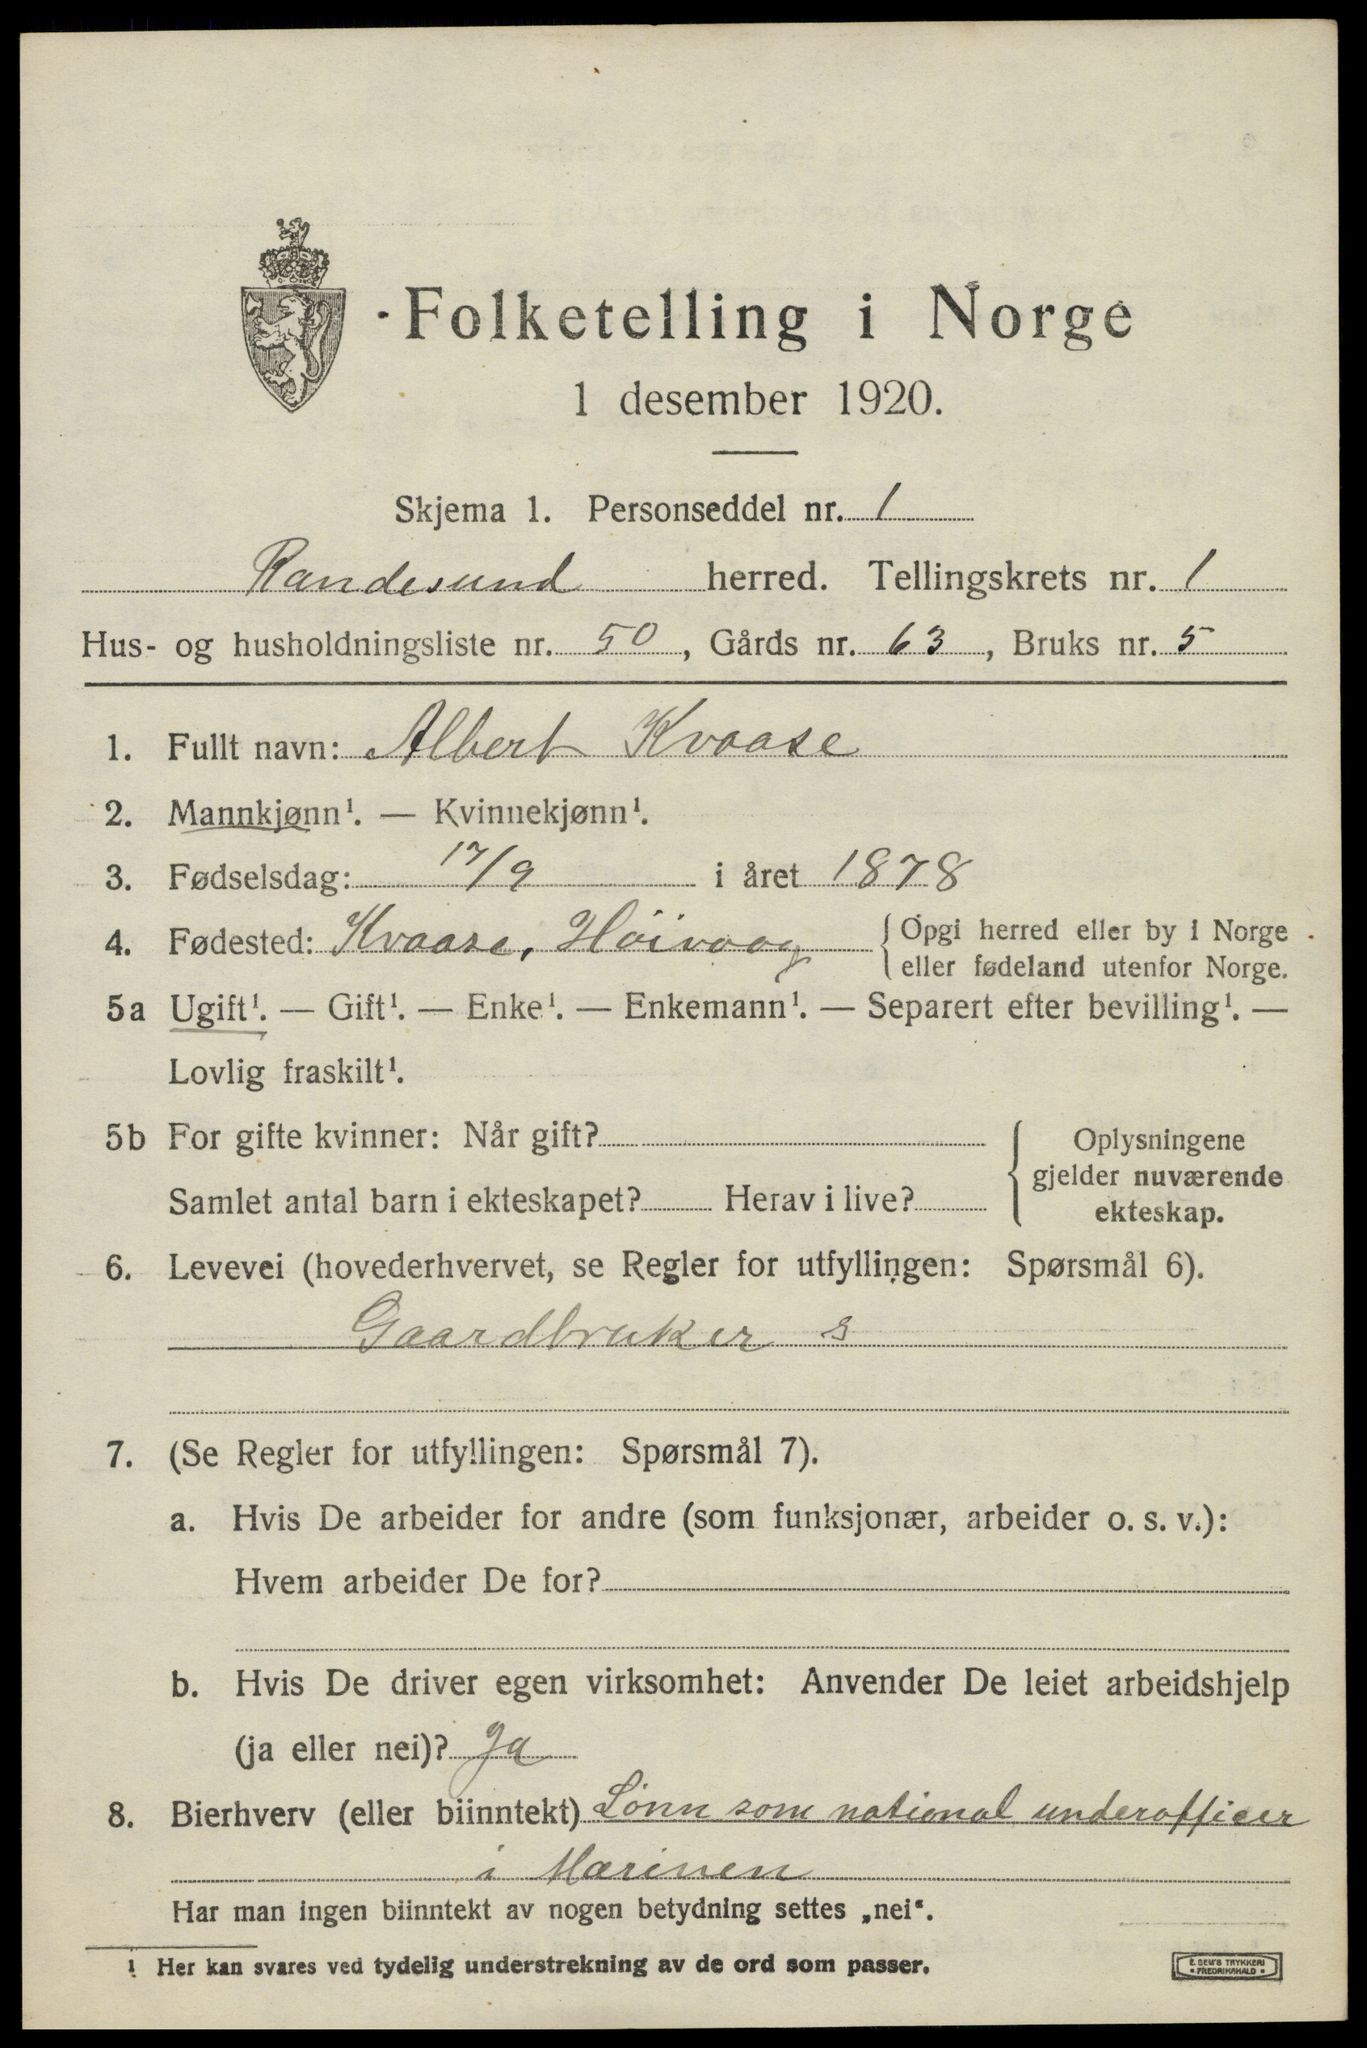 Folketelling i Norge
1 desember 1920.
Skjema 1. Personseddel nr. 1
Randesund herred. Tellingskrets nr. 1
Hus- og husholdningsliste nr. 50, Gårds nr. 63, Bruks nr. 5
1. Fullt navn: Albert Kvaase
2. Mannkjønn¹. — Kvinnekjønn¹.
3. Fødselsdag: 17/9 i året 1878
4. Fødested: Kvaase, Höivaag { Opgi herred eller by i Norge
eller fødeland utenfor Norge.
5a Ugift¹. — Gift¹. — Enke¹. — Enkemann¹. — Separert efter bevilling¹. —
Lovlig fraskilt¹.
5b For gifte kvinner: Når gift?
Samlet antal barn i ekteskapet? Herav i live?
Oplysningene
gjelder nuværende
ekteskap.
6. Levevei (hovederhvervet, se Regler for utfyllingen: Spørsmål 6).
Gaardbruker s
7. (Se Regler for utfyllingen: Spørsmål 7).
a. Hvis De arbeider for andre (som funksjonær, arbeider o. s. v.):
Hvem arbeider De for?
b. Hvis De driver egen virksomhet: Anvender De leiet arbeidshjelp
(ja eller nei)? Ja
8. Bierhverv (eller biinntekt) Lönn som national underofficer
i Marinen
Har man ingen biinntekt av nogen betydning settes „nei“.
¹ Her kan svares ved tydelig understrekning av de ord som passer.
E. SEM'S TRYKKERI
• FREDRIKSHALD •